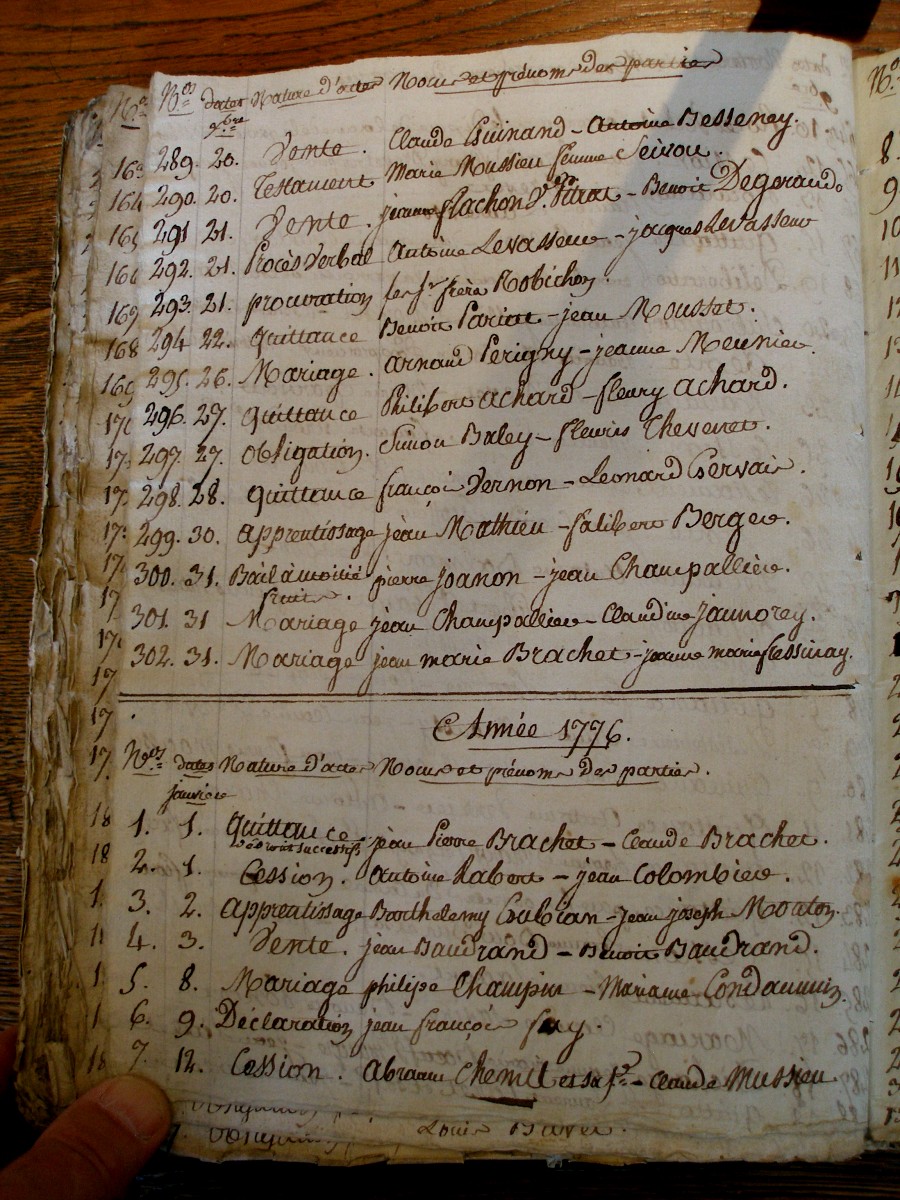 Nos dates Nature d'actes Noms et prénoms des parties
xbre
289. 20. Vente. Claude Guinand - Antoine Bessenay.
290. 20. Testament Marie Moussieu femme
291 21. Vente. jeanne flachon Ve. Pitrat - Benoit Degerando
292. 21. Procès Verbal Antoine Levasseur - jacques Levasseur
293. 21. procuration les frs frère Robichon.
294 22. quittance Benoit Pariat - jean Mousset.
295. 26. Mariage. arnaud Perigny - jeanne Meunier.
296. 27. quittance Philibert achard - fleury achard.
297. 27. obligation. Simon Baley - fleuris Thevenet.
298. 28. quittance françois Vernon - Leonard Gervais.
299. 30. apprentissage jean Mathieu - falibert Berger.
300. 31. Bail à moitié pierre joanon - jean Champallier.
fruits.
301. 31 Mariage jean Champallier - Claudine jaumorey.
302. 31. Mariage jean marie Brachet - jeanne marie flessinay.
Année 1776.
Nos dates Nature d'actes Noms et prénoms des parties.
janvier
1. 1. quittance jean Pierre Brachet - Claude Brachet.
de droits successifs
2. 1. Cession. antoine Rabert - jean Colombier.
3. 2. apprentissage Barthelemy Goubian - jean joseph Moaton.
4. 3. Vente. jean Baudrand - Benoit Baudrand.
5. 8. Mariage philipe Champin - Mariane Condammin.
6. 9. Déclaration jean françois fay.
7. 12. Cession. abraam Chemit et sa fe. - Claude Mussieu
Louis